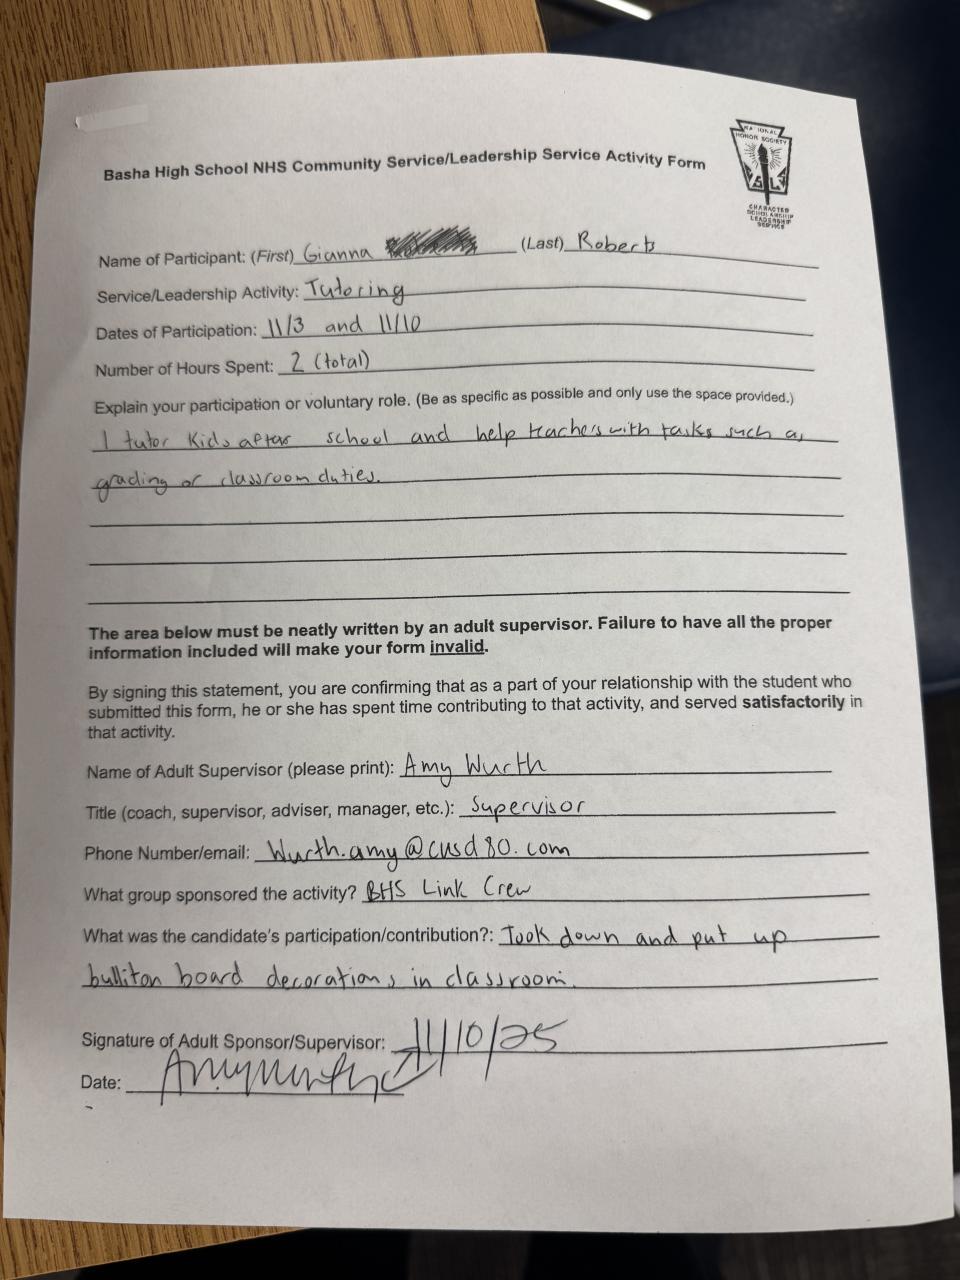 NATIONAL
HONOR SOCIETY
CHARACTER
SCHOLARSHIP
LEADERSHIP
SERVICE
Basha High School NHS Community Service/Leadership Service Activity Form
Name of Participant: (First) Gianna (Last) Roberts
Service/Leadership Activity: Tutoring
Dates of Participation: 11/3 and 11/10
Number of Hours Spent: 2 (total)
Explain your participation or voluntary role. (Be as specific as possible and only use the space provided.)
I tutor kids after school and help teachers with tasks such as
grading or classroom duties.
The area below must be neatly written by an adult supervisor. Failure to have all the proper
information included will make your form invalid.
By signing this statement, you are confirming that as a part of your relationship with the student who
submitted this form, he or she has spent time contributing to that activity, and served satisfactorily in
that activity.
Name of Adult Supervisor (please print): Amy Wurth
Title (coach, supervisor, adviser, manager, etc.): Supervisor
Phone Number/email: Wurth.amy@cusd80.com
What group sponsored the activity? BHS Link Crew
What was the candidate's participation/contribution?: Took down and put up
bulliton board decorations in classroom.
Signature of Adult Sponsor/Supervisor: 11/10/25
Date: